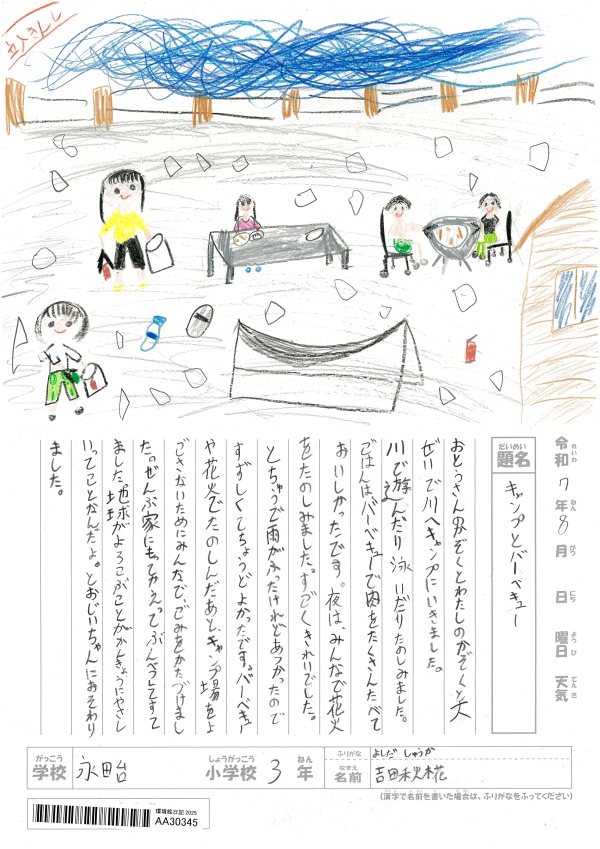 立入きんし
令和 7年 8月 日 曜日 天気
れいわ ねん がつ にち ようび てんき
だいめい
題名
キャンプとバーベキュー
おとうさんのかぞくとわたしのかぞくと大
ぜいで川へキャンプにいきました。
川で遊んだり泳いだりたのしみました。
ごはんはバーベキューで肉をたくさんたべて
おいしかったです。夜は、みんなで花火
をたのしみました。すごくきれいでした。
とちゅうで雨がふったけれどあつかったので
すずしくてちょうどよかったです。バーベキュー
や花火でたのしんだあと、キャンプ場をよ
ごさないためにみんなで、ごみをかたづけまし
た。ぜんぶ家にもってかえってぶんべつしてすて
ました。地球がよろこぶことがかんきょうにやさし
いってことなんだよ。とおじいちゃんにおそわり
ました。
がっこう しょうがっこう ねん
学校 永田台 小学校 3年
ふりがな よしだ しゅうか
なまえ
名前 吉田秋椛
(漢字で名前を書いた場合は、ふりがなをふってください)
環境絵日記2025
AA30345